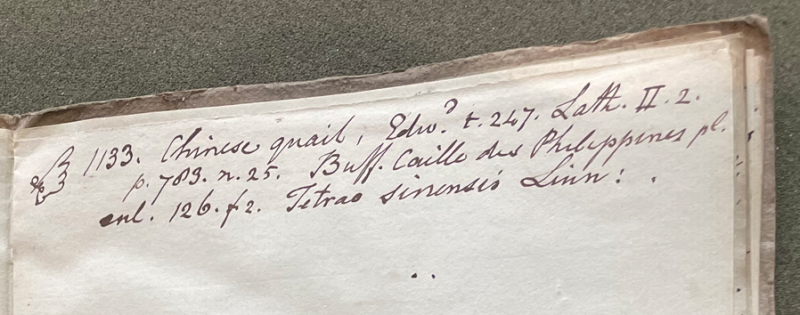 1133. Chinese quail, Edwd. t. 247. Lath. II. 2.
p. 783. n. 25. Buff. Caille des Philippines pl.
enl. 126. f 2. Tetrao sinensis Linn: .